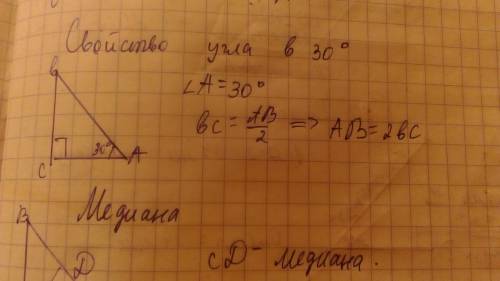 Свойство угла в 30°
В
∠A = 30°
вс = AB/2 => AB = 2вс
30°
C
A
Медиана
В
D
CD - медиана.